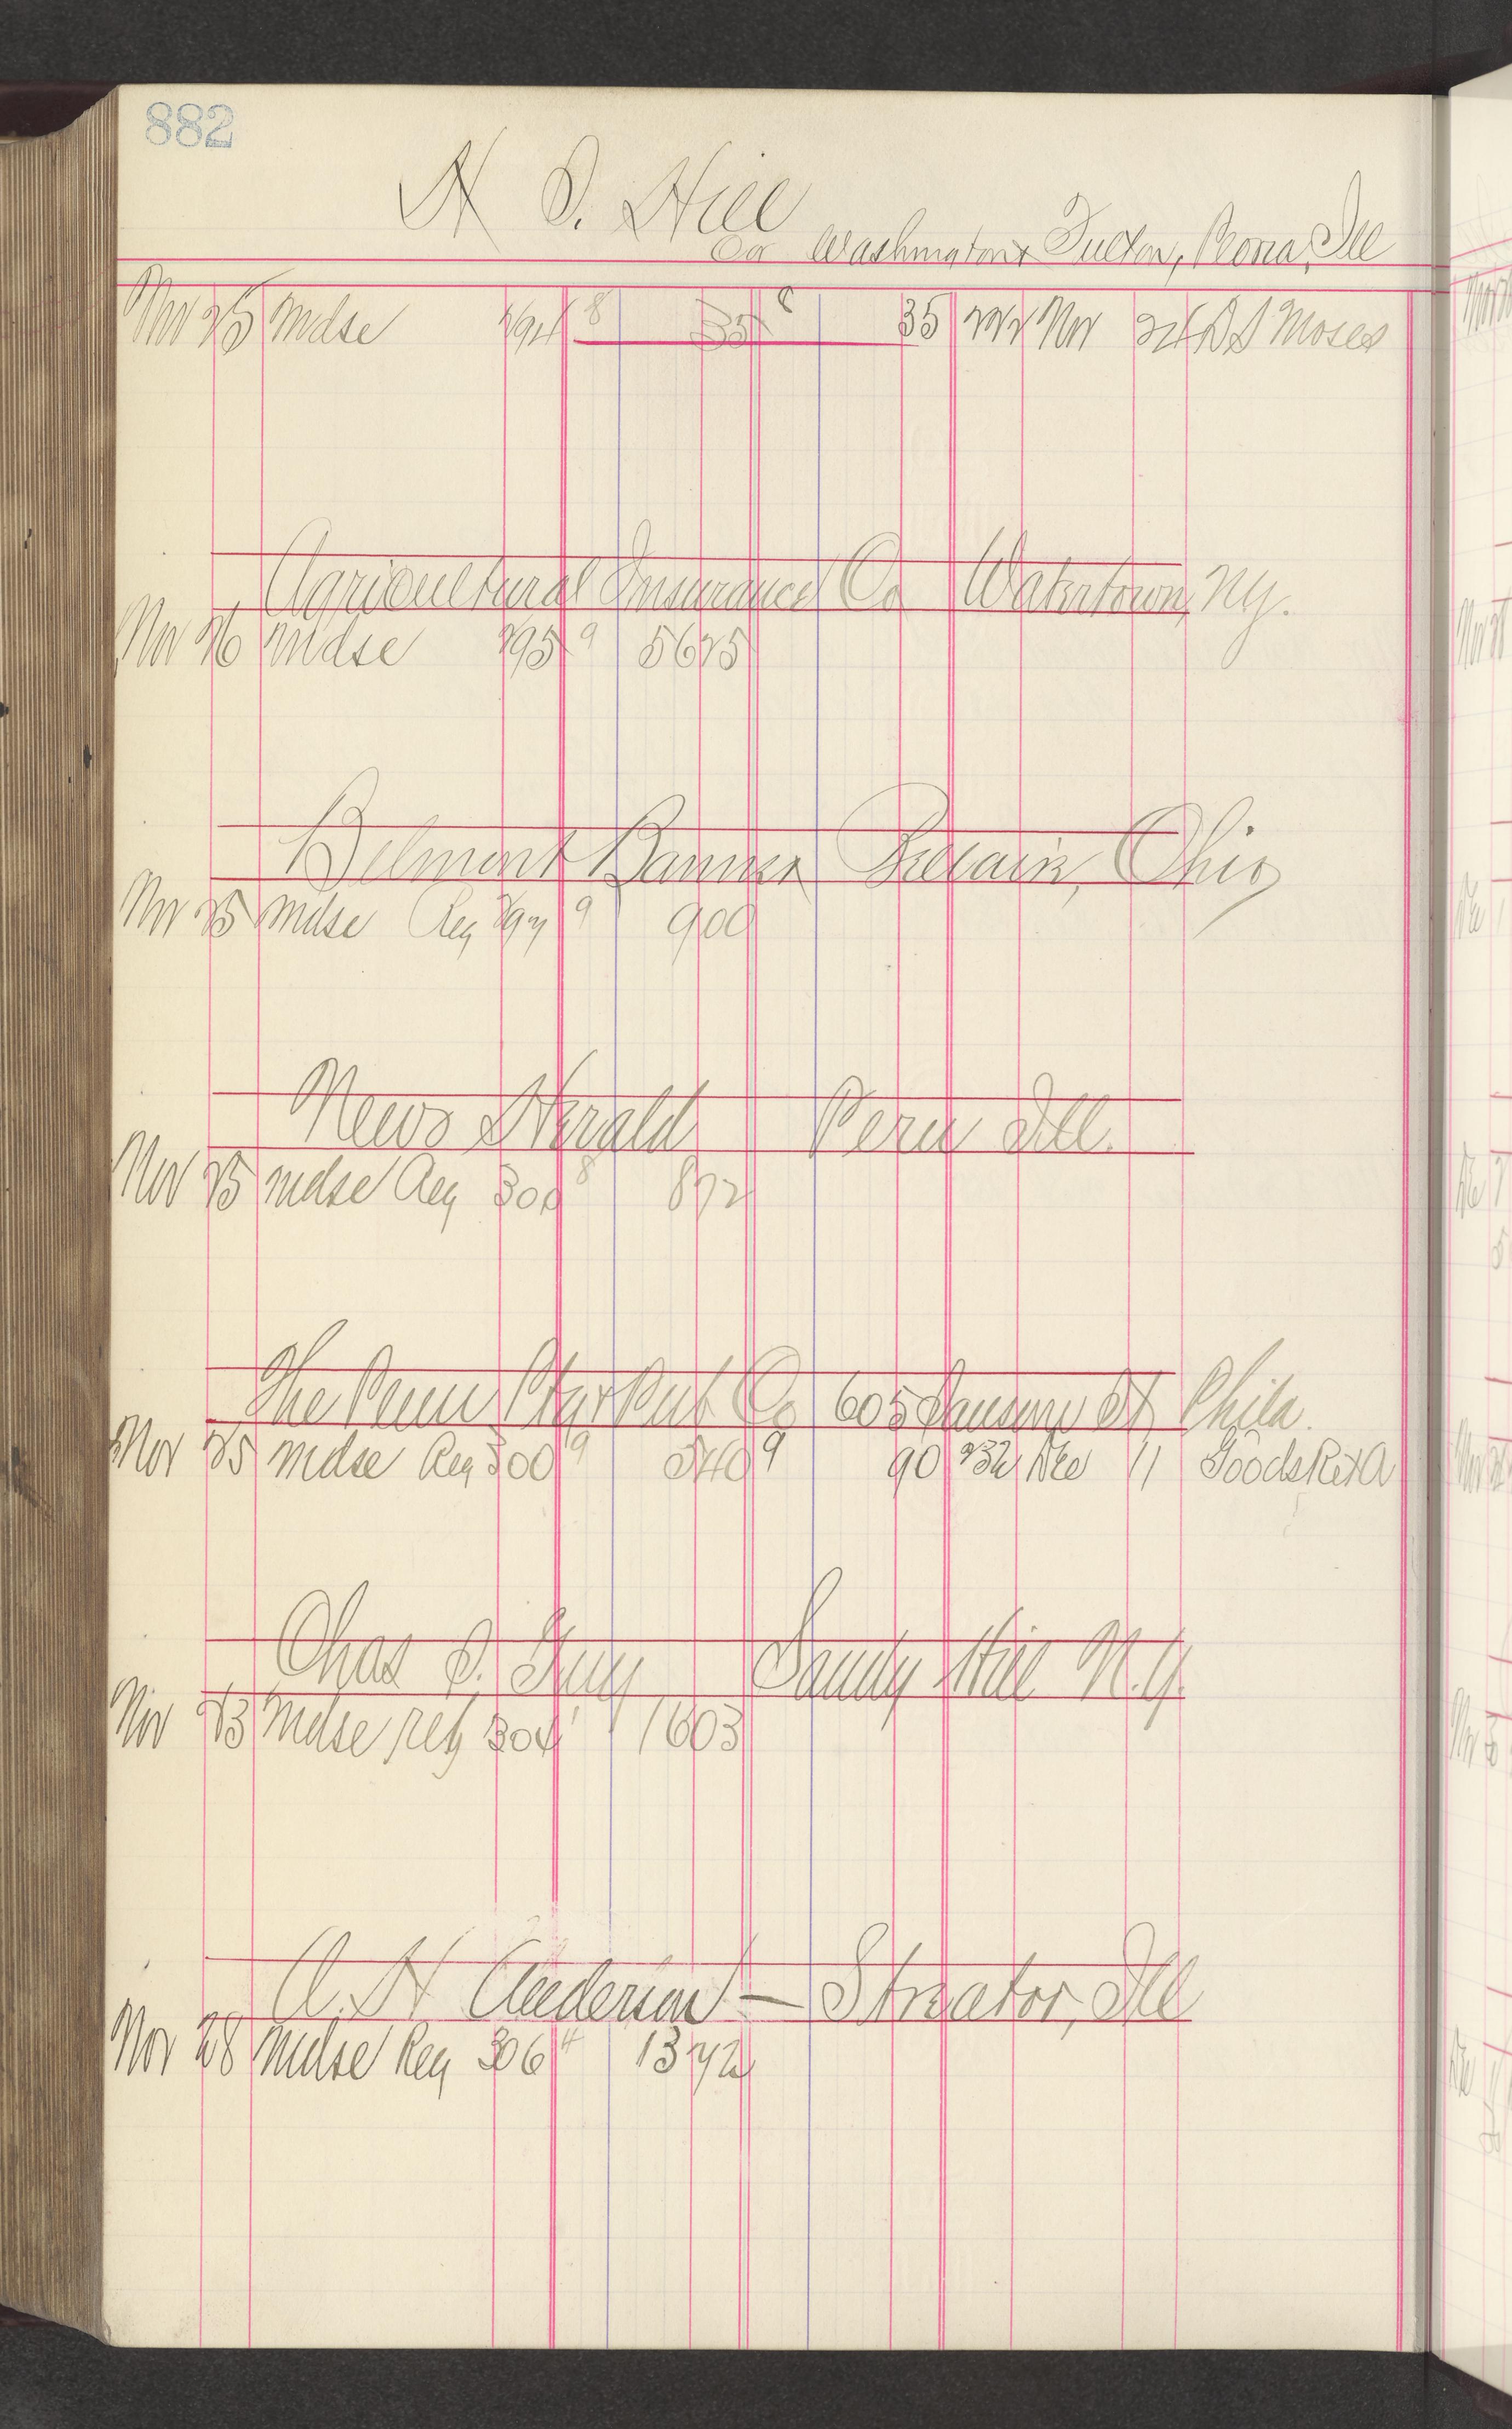 882
H S. Hill
Co Washington & Fulton, Peoria, Ill
Nov 25 Mdse 294 8 35 C 35 222 Nov 24 R S Moses
Agricultural Insurance Co Watertown, N.Y.
Nov 26 Mdse 295 9 5625
Belmont Banner Bellaire, Ohio
Nov 25 Mdse Reg 297 9 900
News Herald Peru Ill.
Nov 25 Mdse Reg 300 8 872
The Penn Ptg & Pub Co 605 Sansom St Phila.
Nov 25 Mdse Reg 300 9 540 9 90 232 Dec 11 Goods Retd
Chas S. Guy Sandy Hill N.Y.
Nov 23 Mdse reg 304 1 1603
A. H Anderson — Streator, Ill
Nov 28 Mdse Reg 306 4 1372